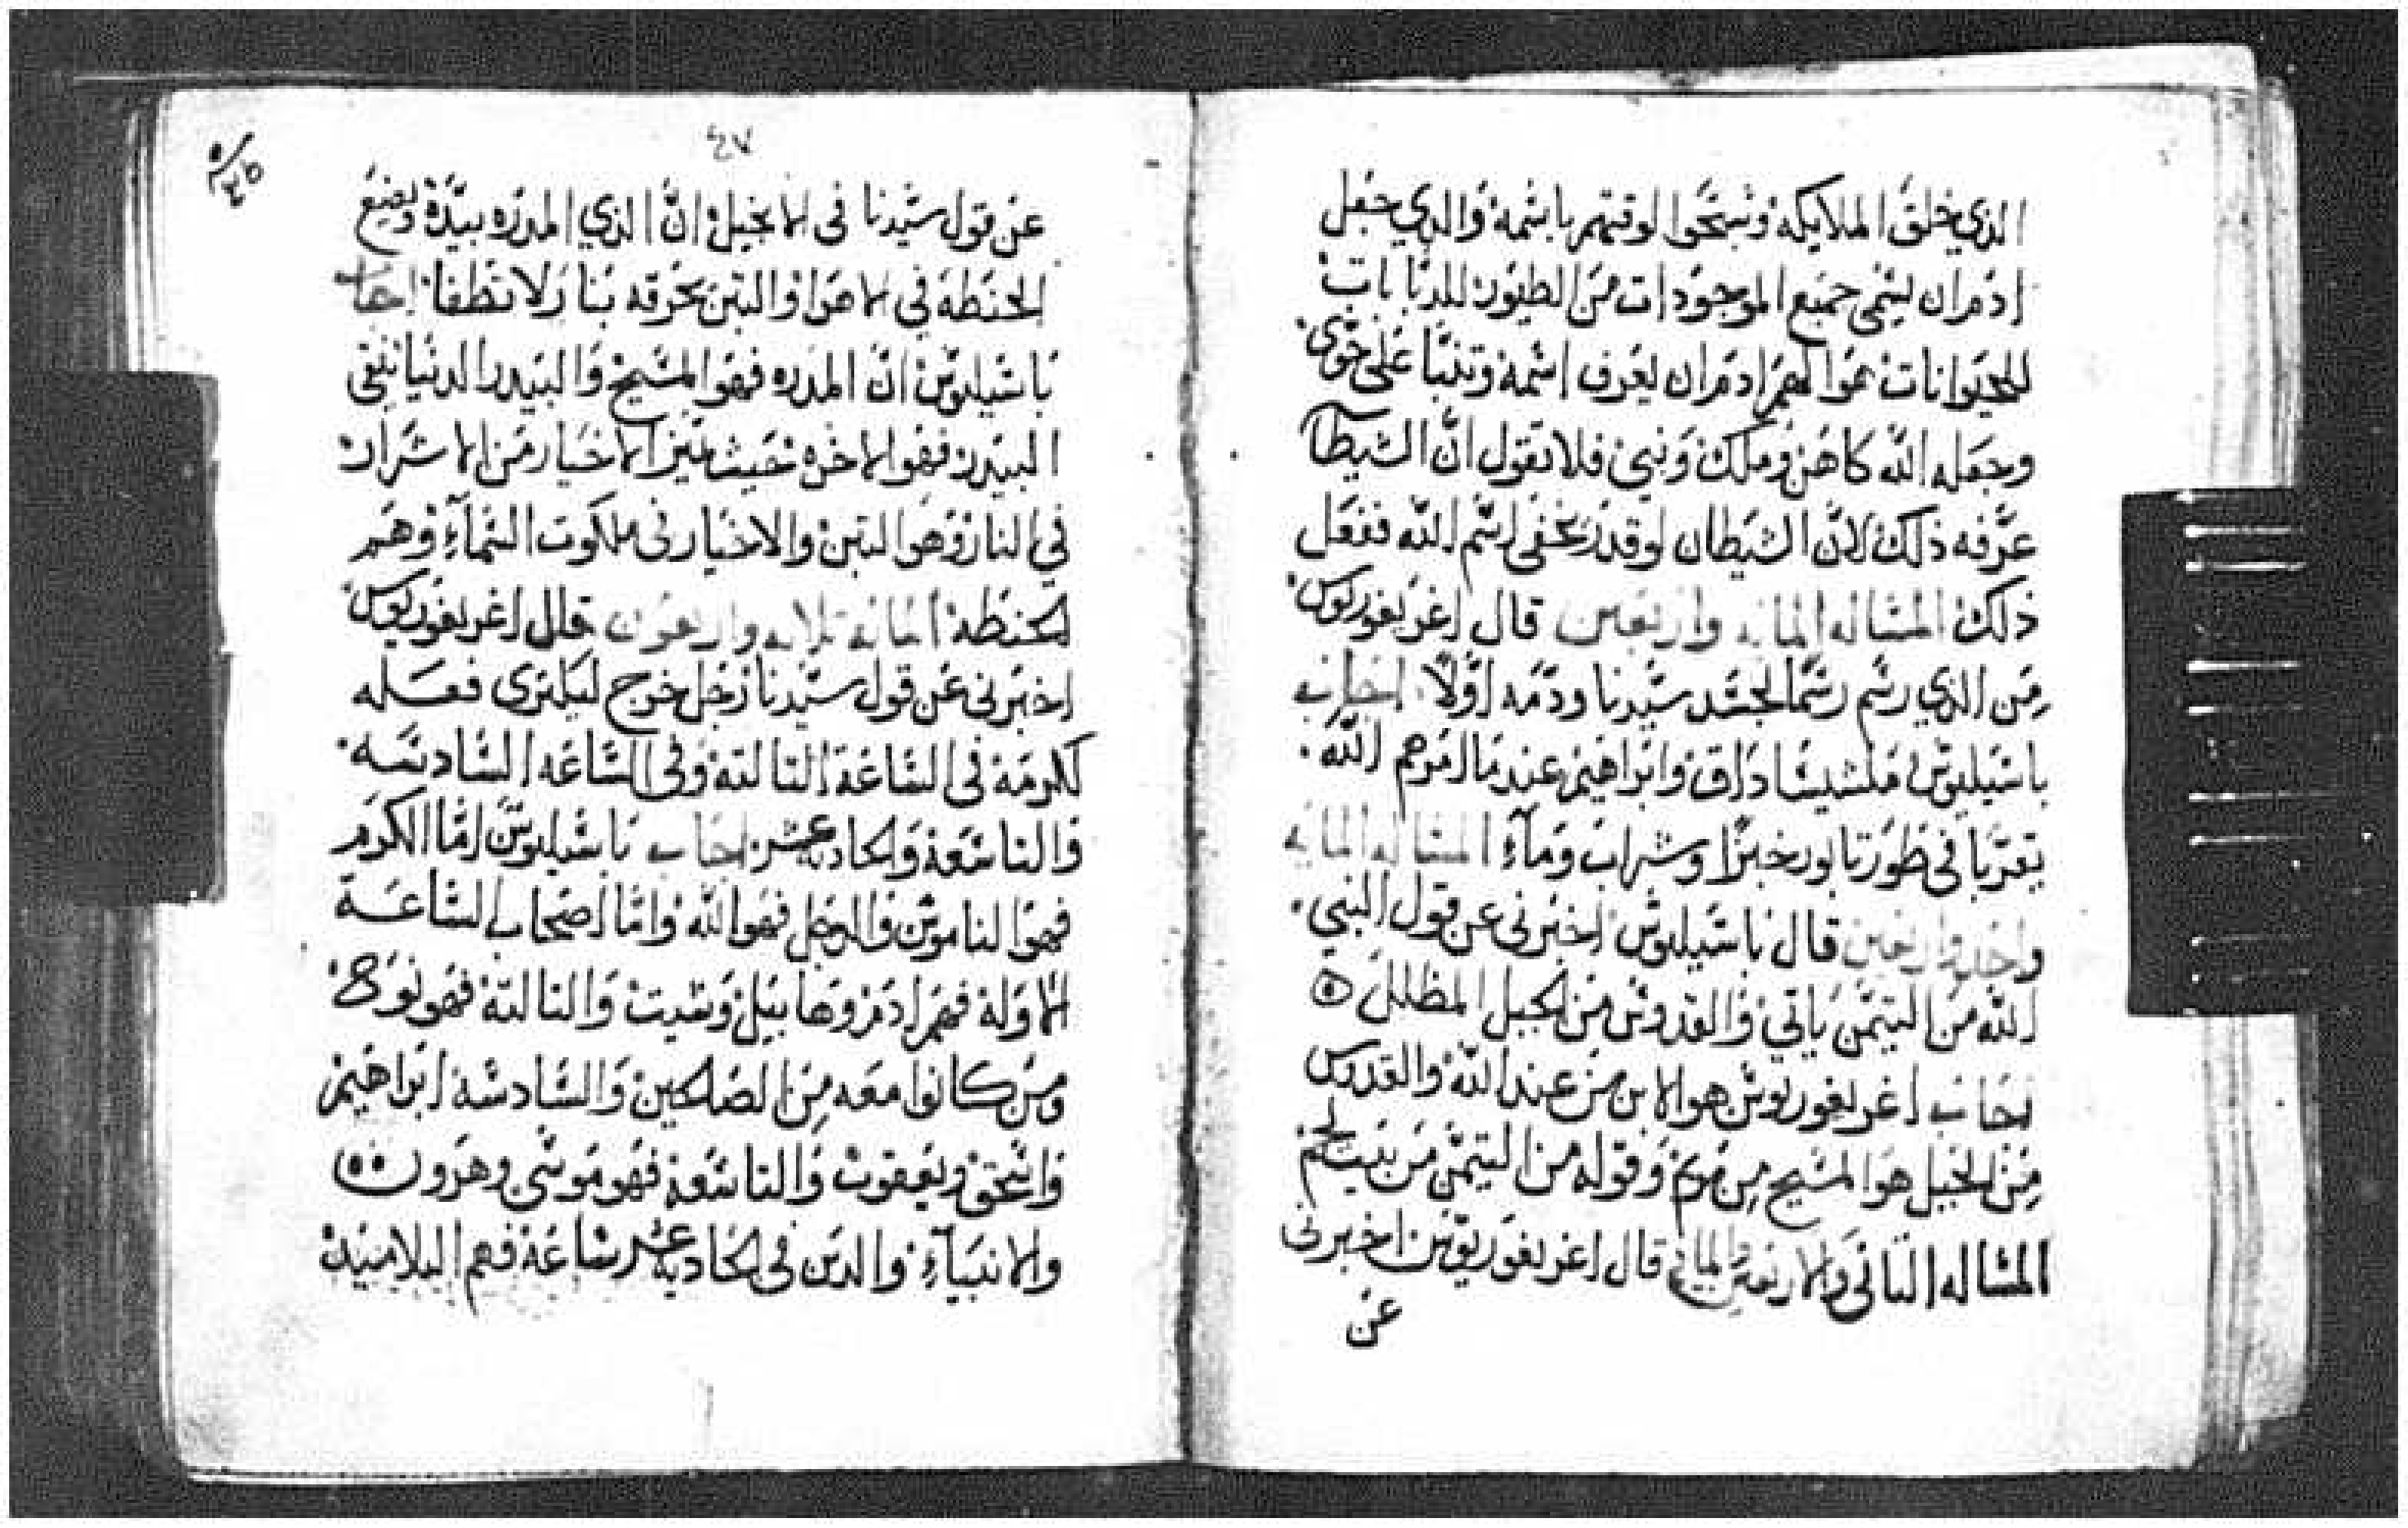 الذي خلق الملايكه وسبحوا لوقتهم باسمه والدي جعل
ادم ان يسمي جميع الموجودات من الطيور للدبابات
للحيوانات هموا لهم ادم ان يعرف اسمه وتنبا على حوى
وجعله الله كاهن وملك ونبي فلا تقول ان الشيطا
عرفه ذلك لان الشيطان لو قدر يخفى اسم الله ففعل
ذلك المساله المايه واربعين قال اغريغوريوس
من الذي رسم رسم الجسد سيدنا ودمه اولا اجاب
باسيليوس ملشيساداق وابراهيم عندما امرهم الله
يقربا في طور تابور خبزا وشراب وماء المساله المايه
واحد واربعين قال باسيليوس اخبرني عن قول النبي
الله من التيمن ياتي والقدوس من الجبل المظلل
اجاب اغريغوريوس هو الابن من عند الله والقدوس
من الجبل هو المسيح من مريم وقوله من التيمن من بيت لحم
المساله التاني والاربعة المايه قال اغريغوريوس اخبرني
عن
٤٧
عن قول سيدنا في الانجيل ان الذي المدره بيده ويضيع
الحنطه في الاهرا والتبن يحرقه بنار لا تطفا اجاب
باسيليوس ان المدره فهو المسيح والبيدر الدنيا ينقي
البيدر فهو الاخره حيث يميز الاخيار من الاشرار
في النار وهو التبن والاخيار في ملكوت السماء وهم
الحنطه المايه تلاته واربعون قال اغريغوريوس
اخبرني عن قول سيدنا رجل خرج ليكتري فعله
لكرمة في الساعة التالتة وفي الساعه السادسه
والتاسعة والحاديه عشر اجاب باسيليوس اما الكرم
فهو الناموس والرجل فهو الله واما اصحاب الساعة
الاوله فهم ادم وهابيل وشيت والتالتة فهو نوح
ومن كانوا معه من الصالحين والسادسه ابراهيم
واسحق ويعقوب والتاسعة فهو موسى وهرون
والانبياء والدين في الحاديه عشر ساعة فهم التلاميد